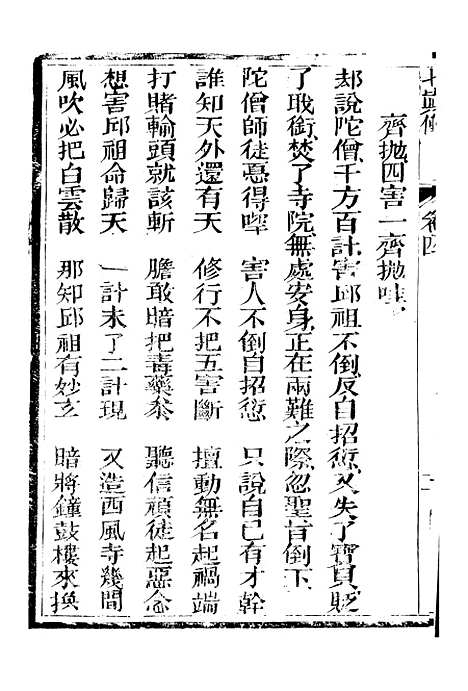 七真傳 卷四
齊拋四害一齊拋哇
却說陀僧千方百計害邱祖不倒反自招愆又失了寶貝貶
了職銜焚了寺院無處安身正在兩難之際忽聖旨倒下
陀僧師徒惡得哔 害人不倒自招愆 只說自己有才幹
誰知天外還有天 修行不把五害斷 擅動無名起禍端
打賭輸頭就該斬 膽敢暗把毒藥叅 聽信頑徒起惡念
想害邱祖命歸天 一計未了二計現 又造西風寺幾間
風吹必把白雲散 那知邱祖有妙玄 暗將鐘鼓樓來換